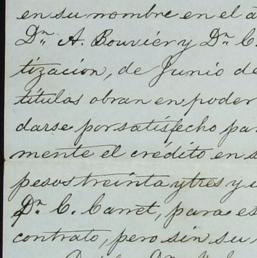 en su nombre en el a
Dn. A. Bouvier y Dn. C.
tización, de Junio de
títulos obran en poder
darse por satisfecho par
mente el crédito en s
pesos treinta y tres y c
Dn. C. Carret, para es
contrato, pero sin su